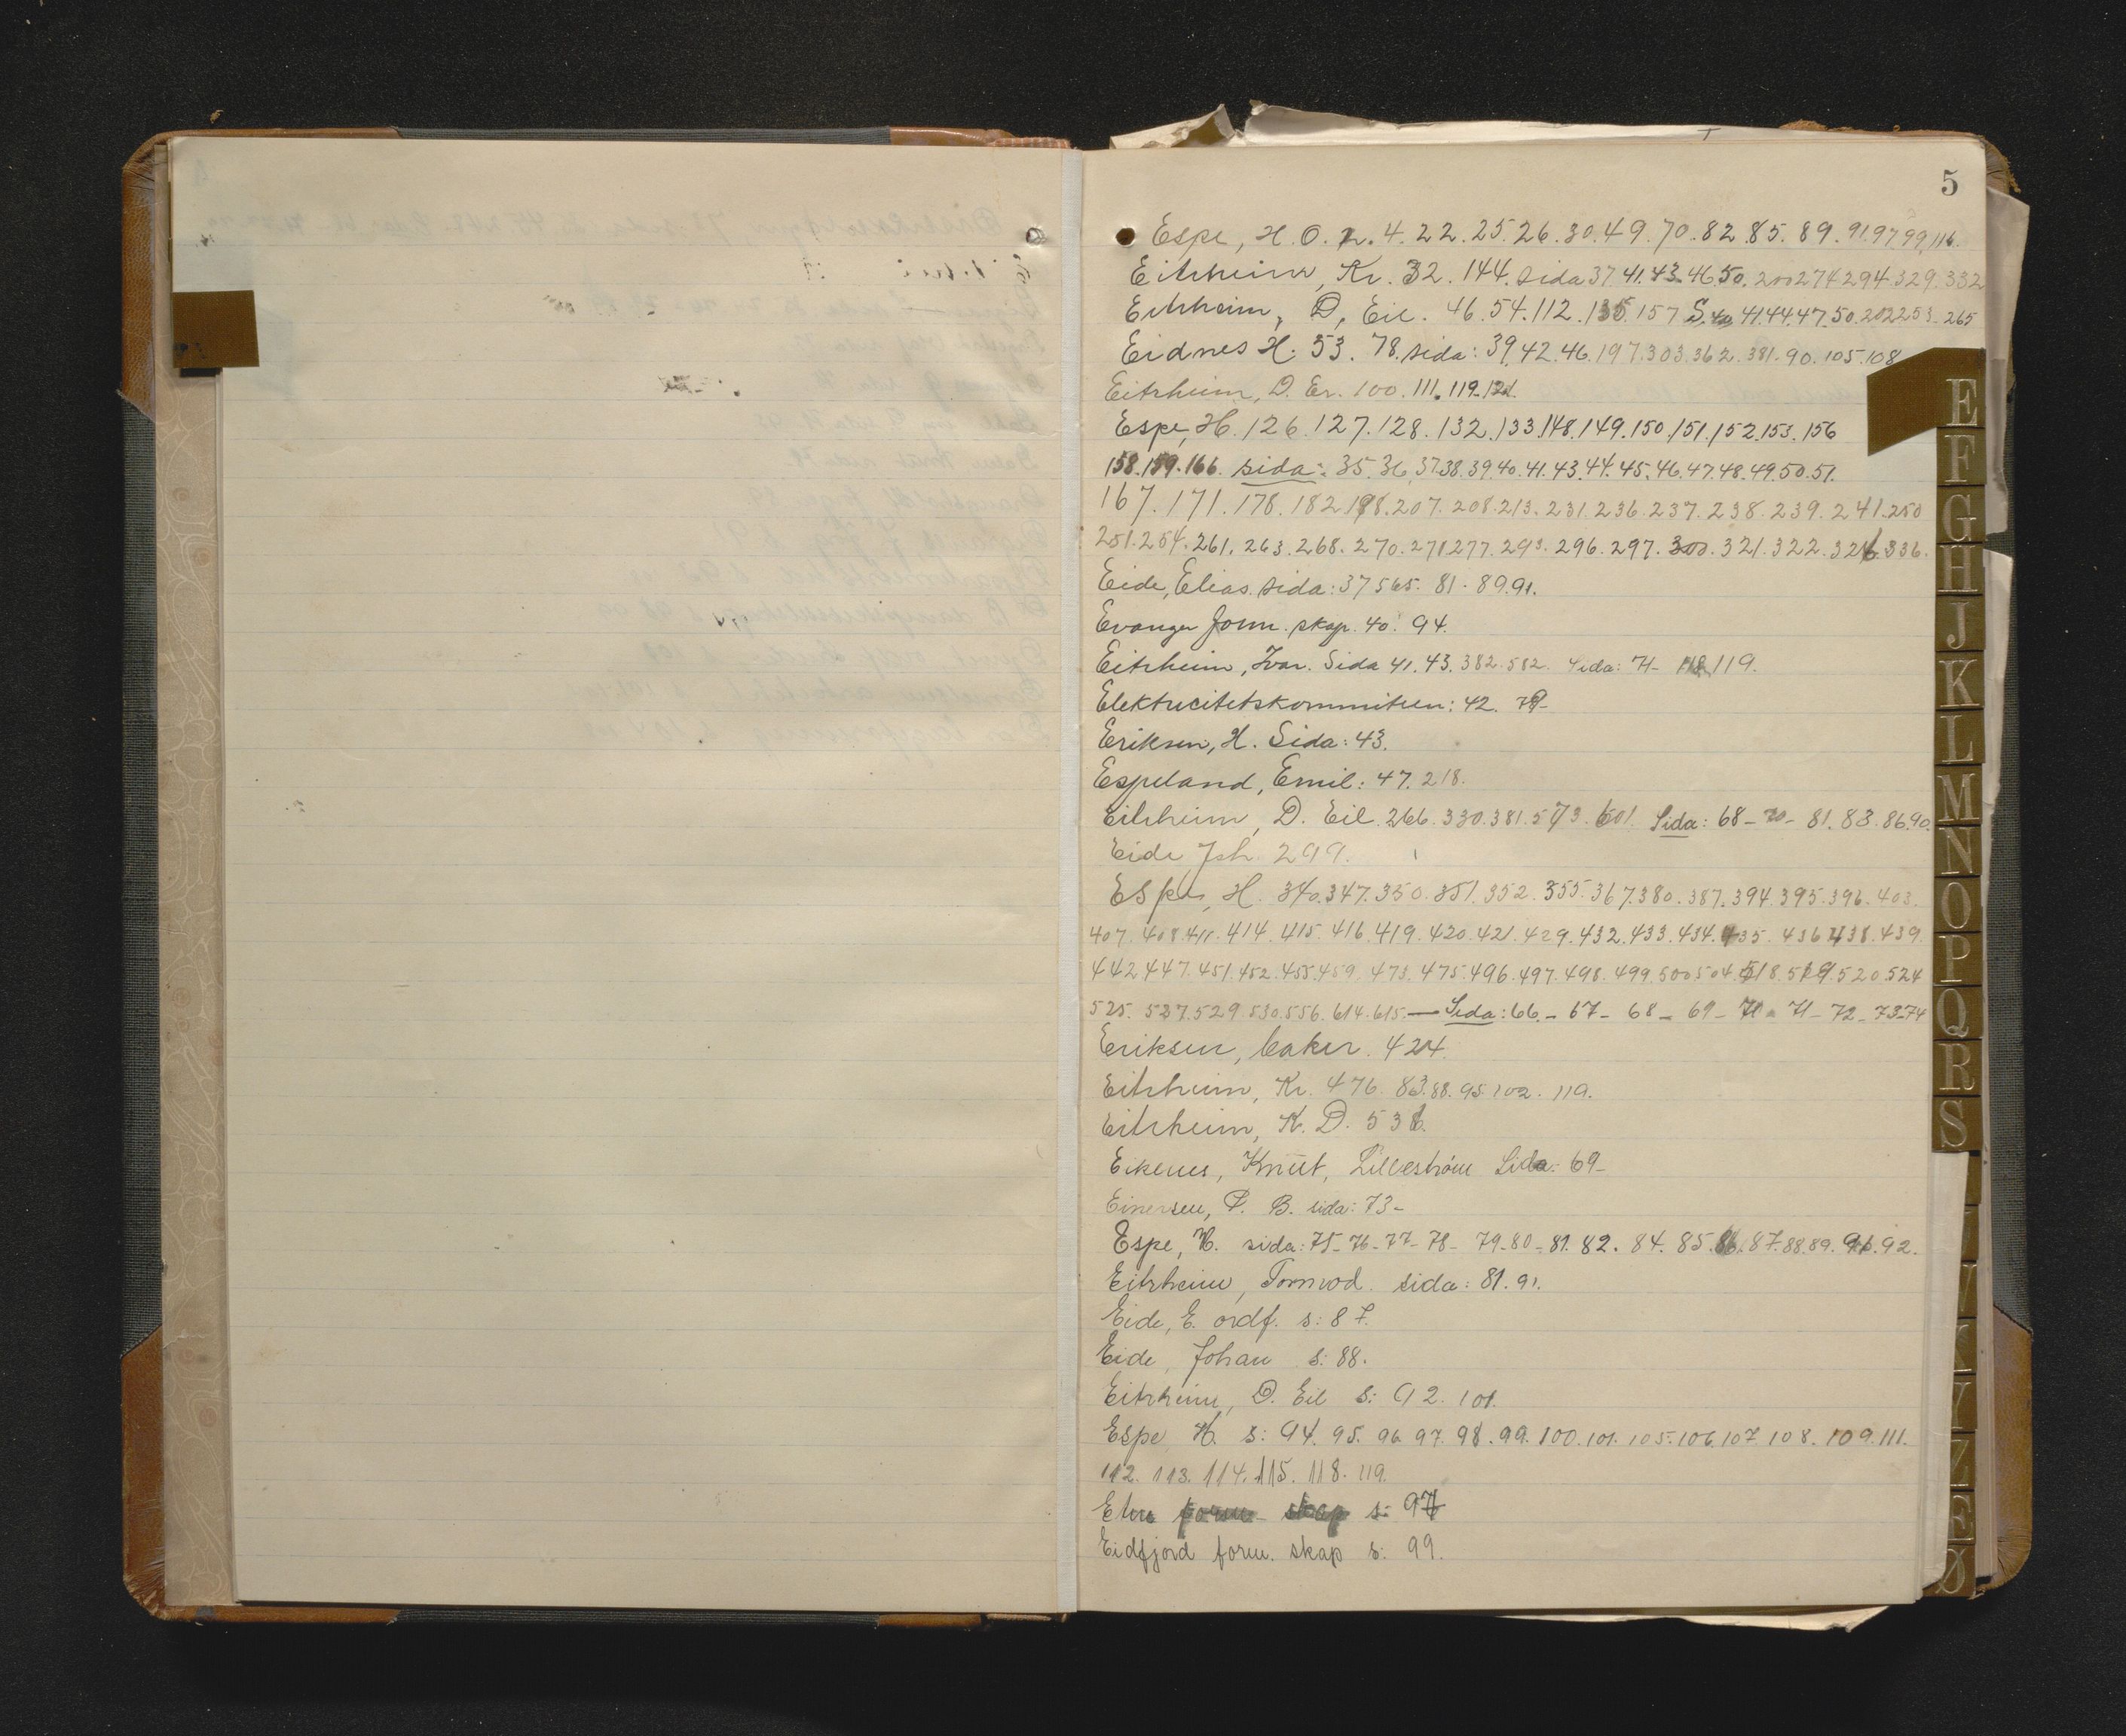 5
Espe, H. O. 2. 4. 22. 25. 26. 30. 49. 70. 82. 85. 89. 91. 97. 99. 116.
Eitrheim, Kr. 32. 144. Sida 37. 41. 43. 46. 50. 200 274 294. 329. 332
Eitrheim, D. Eil. 46. 54. 112. 135. 157 S. 40 41. 44. 47. 50. 202 253. 265
Eidnes H. 53. 78. sida: 39. 42. 46. 197. 303. 362. 381. 90. 105. 108
Eitrheim, D. Er. 100. 111. 119. 121.
Espe, H. 126. 127. 128. 132. 133. 148. 149. 150. 151. 152. 153. 156
158. 159. 166. sida: 35. 36. 37. 38. 39. 40. 41. 43. 44. 45. 46. 47. 48. 49. 50. 51.
167. 171. 178. 182. 198. 207. 208. 213. 231. 236. 237. 238. 239. 241. 250
251. 254. 261. 263. 268. 270. 271. 277. 293. 296. 297. 300. 321. 322. 326. 336.
Eide, Elias. sida: 37 565. 81. 89. 91.
Evanger form. skap. 40. 94.
Eitrheim, Ivar. Sida 41. 43. 382. 582. Sida: 71- 118 119.
Elektricitetskommiteen: 42. 79-
Eriksen, H. Sida: 43.
Espeland, Emil: 47. 218.
Eitrheim, D. Eil. 266. 330. 381. 573. 601. Sida: 68- 70- 81. 83. 86. 90.
Eide Joh. 299.
Espe, H. 340. 347. 350. 351. 352. 355. 367. 380. 387. 394. 395. 396. 403.
407. 408. 411. 414. 415. 416. 419. 420. 421. 429. 432. 433. 434. 435. 436 438. 439.
442 447. 451. 452. 455. 459. 473. 475. 496. 497. 498. 499. 500 504. 518. 519. 520. 524
525. 527. 529. 530. 556. 614. 615. — Sida: 66.- 67- 68- 69- 70- 71- 72- 73-74
Eriksen, baker. 424.
Eitrheim, Kr. 476. 83. 88. 95. 102. 119.
Eitrheim, K. D. 536.
Eikenes, Knut, Lilleström Sida: 69-
Einersen, P. B. sida: 73-
Espe, H. sida: 75- 76- 77- 78- 79- 80- 81. 82. 84. 85. 86. 87. 88. 89. 91. 92.
Eitrheim, Tormod. sida: 81. 91.
Eide, E. ordf. s: 87.
Eide, Johan s: 88.
Eitrheim, D. Eil s: 92. 101.
Espe H. s: 94. 95. 96. 97. 98. 99. 100. 101. 105. 106. 107 108. 109. 111.
112. 113. 114. 115. 118. 119.
Etne form- skap s: 97
Eidfjord form. skap s: 99.
E
F
G
H
J
K
L
M
N
O
P
Q
R
S
Y
Z
Æ
Ø